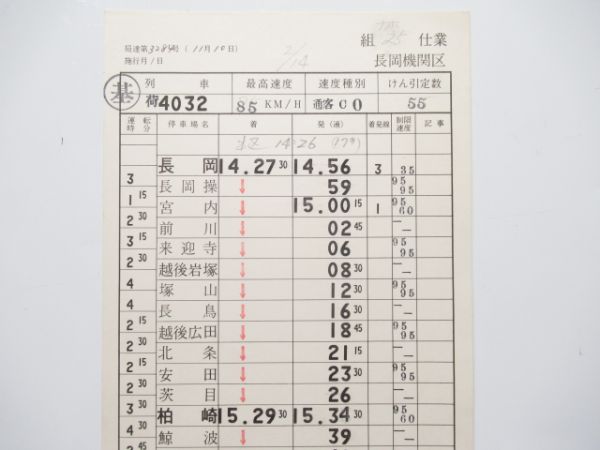 局達第328号 (11月10日)
施行月1日
2/14
組 25 仕業
長岡機関区
基
列車 最高速度 速度種別 けん引定数
荷4032 85 KM/H 通客 C0 55
運転時分 停車場名 着 発(通) 着発線 制限速度 記事
14 26
長岡 14.27 30 14.56 3 35
3
長岡操 ↓ 59 95 95
1 15
宮内 ↓ 15.00 15 1 95 60
2 30
前川 ↓ 02 45 — —
3 15
来迎寺 ↓ 06 95 95
2 30
越後岩塚 ↓ 08 30 — —
4
塚山 ↓ 12 30 95 95
4
長鳥 ↓ 16 30 — —
2 15
越後広田 ↓ 18 45 95 95
2 30
北条 ↓ 21 15 — —
2 15
安田 ↓ 23 30 95 95
2 30
茨目 ↓ 26 — —
3 30
柏崎 15.29 30 15.34 30 95 60
4 30
鯨波 ↓ 39 — —
2 45